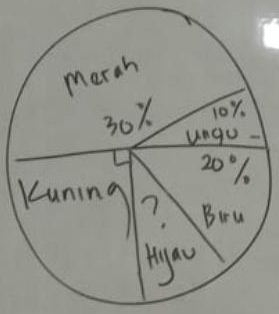 Merah
30%
10%
ungu
20%
Kuning
?
Biru
Hijau